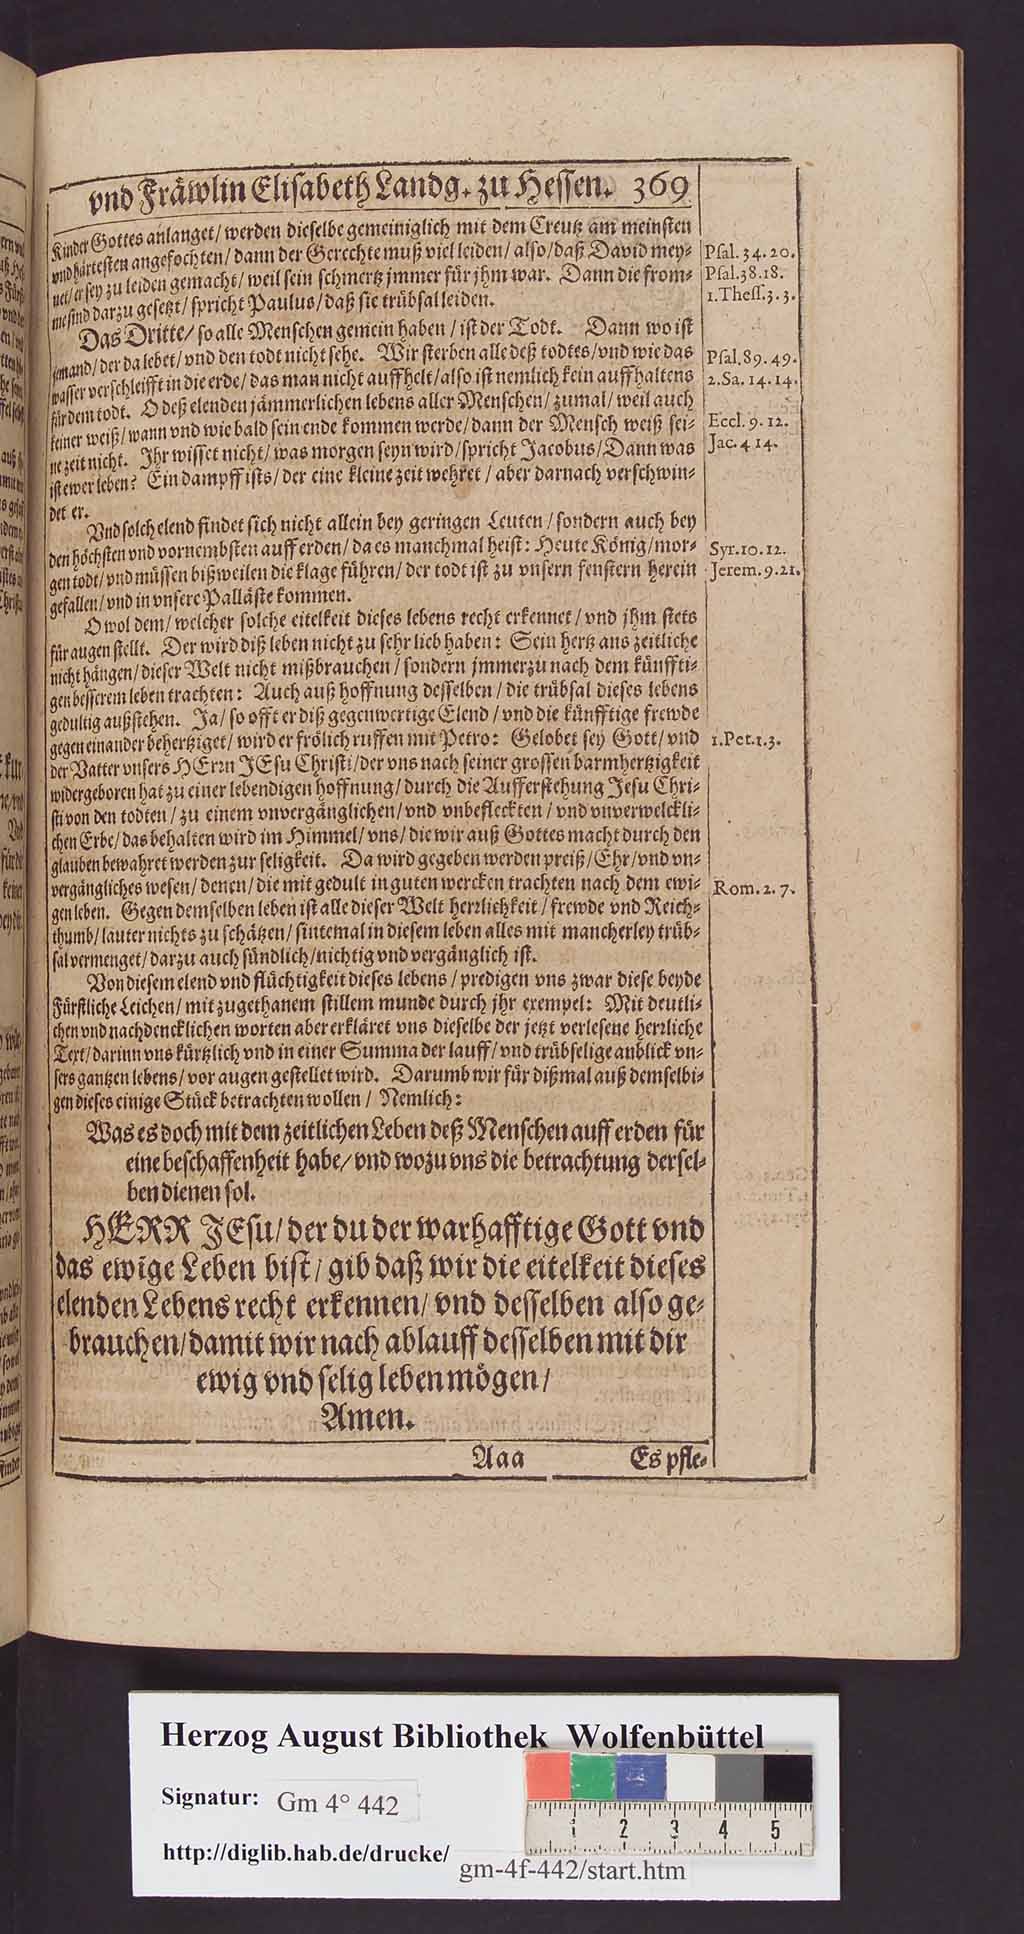 vnd Fräwlin Elisabeth Landg. zu Hessen. 369
Kinder Gottes anlanget/ werden dieselbe gemeiniglich mit dem Creutz am meinsten
vnd härtesten angefochten/ dann der Gerechte muß viel leiden/ also/ daß David mey-
net/ er sey zu leiden gemacht/ weil sein schmertz jmmer für jhm war. Dann die from-
me sind darzu gesetzt/ spricht Paulus/ daß sie trübsal leiden.
Psal. 34. 20.
Psal. 38. 18.
1. Thess. 3. 3.
Das Dritte/ so alle Menschen gemein haben/ ist der Todt. Dann wo ist
jemand/ der da lebet/ vnd den todt nicht sehe. Wir sterben alle deß todtes/ vnd wie das
wasser verschleifft in die erde/ das man nicht auffhelt/ also ist nemlich kein auffhaltens
für dem todt. O deß elenden jämmerlichen lebens aller Menschen/ zumal/ weil auch
keiner weiß/ wann vnd wie bald sein ende kommen werde/ dann der Mensch weiß sei-
ne zeit nicht. Ihr wisset nicht/ was morgen seyn wird/ spricht Jacobus/ Dann was
ist ewer leben? Ein dampff ists/ der eine kleine zeit wehret/ aber darnach verschwin-
det er.
Psal. 89. 49.
2. Sa. 14. 14.
Eccl. 9. 12.
Jac. 4 14.
Vnd solch elend findet sich nicht allein bey geringen Leuten/ sondern auch bey
den höchsten vnd vornembsten auff erden/ da es manchmal heist: Heute König/ mor-
gen todt/ vnd müssen bißweilen die klage führen/ der todt ist zu vnsern fenstern herein
gefallen/ vnd in vnsere Palläste kommen.
Syr. 10. 12.
Jerem. 9. 21.
O wol dem/ welcher solche eitelkeit dieses lebens recht erkennet/ vnd jhm stets
für augen stellt. Der wird diß leben nicht zu sehr lieb haben: Sein hertz ans zeitliche
nicht hängen/ dieser Welt nicht mißbrauchen/ sondern jmmerzu nach dem künffti-
gen besserem leben trachten: Auch auß hoffnung desselben/ die trübsal dieses lebens
gedultig außstehen. Ja/ so offt er diß gegenwertige Elend/ vnd die künfftige frewde
gegen einander behertziget/ wird er frölich ruffen mit Petro: Gelobet sey Gott/ vnd
der Vatter vnsers HErrn JEsu Christi/ der vns nach seiner grossen barmhertzigkeit
widergeboren hat zu einer lebendigen hoffnung/ durch die Aufferstehung Jesu Chri-
sti von den todten/ zu einem vnvergänglichen/ vnd vnbefleckten/ vnd vnverwelckli-
chen Erbe/ das behalten wird im Himmel/ vns/ die wir auß Gottes macht durch den
glauben bewahret werden zur seligkeit. Da wird gegeben werden preiß/ Ehr/ vnd vn-
vergängliches wesen/ denen/ die mit gedult in guten wercken trachten nach dem ewi-
gen leben. Gegen demselben leben ist alle dieser Welt herrlichkeit/ frewde vnd Reich-
thumb/ lauter nichts zu schätzen/ sintemal in diesem leben alles mit mancherley trüb-
sal vermenget/ darzu auch sündlich/ nichtig vnd vergänglich ist.
1. Pet. 1. 3.
Rom. 2. 7.
Von diesem elend vnd flüchtigkeit dieses lebens/ predigen vns zwar diese beyde
Fürstliche Leichen/ mit zugethanem stillem munde durch jhr exempel: Mit deutli-
chen vnd nachdencklichen worten aber erkläret vns dieselbe der jetzt verlesene herrliche
Text/ darinn vns kürtzlich vnd in einer Summa der lauff/ vnd trübselige anblick vn-
sers gantzen lebens/ vor augen gestellet wird. Darumb wir für dißmal auß demselbi-
gen dieses einige Stück betrachten wollen/ Nemlich:
Was es doch mit dem zeitlichen Leben deß Menschen auff erden für
eine beschaffenheit habe/ vnd wozu vns die betrachtung dersel-
ben dienen sol.
HERR JEsu/ der du der warhafftige Gott vnd
das ewige Leben bist/ gib daß wir die eitelkeit dieses
elenden Lebens recht erkennen/ vnd desselben also ge-
brauchen/ damit wir nach ablauff desselben mit dir
ewig vnd selig leben mögen/
Amen.
Aaa Es pfle-
Herzog August Bibliothek Wolfenbüttel
Signatur: Gm 4° 442
http://diglib.hab.de/drucke/ gm-4f-442/start.htm
1 2 3 4 5